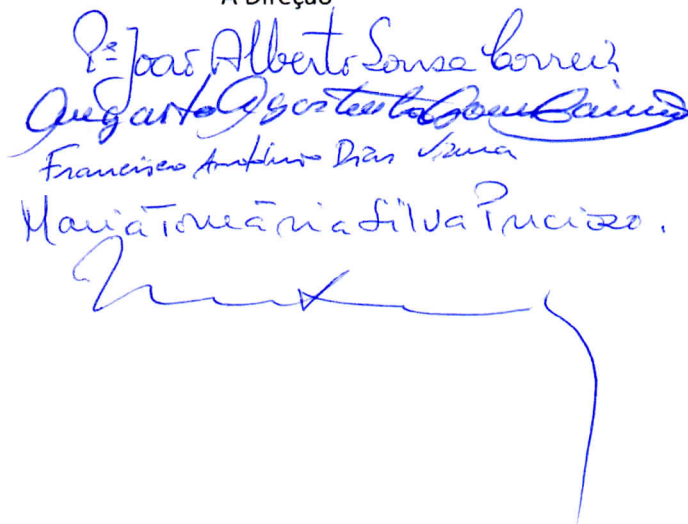 A Direção
Pe João Alberto Sousa Correia
Augusto Agostinho
Francisco António Dias Viana
Maria Tomázia Silva Precioso.